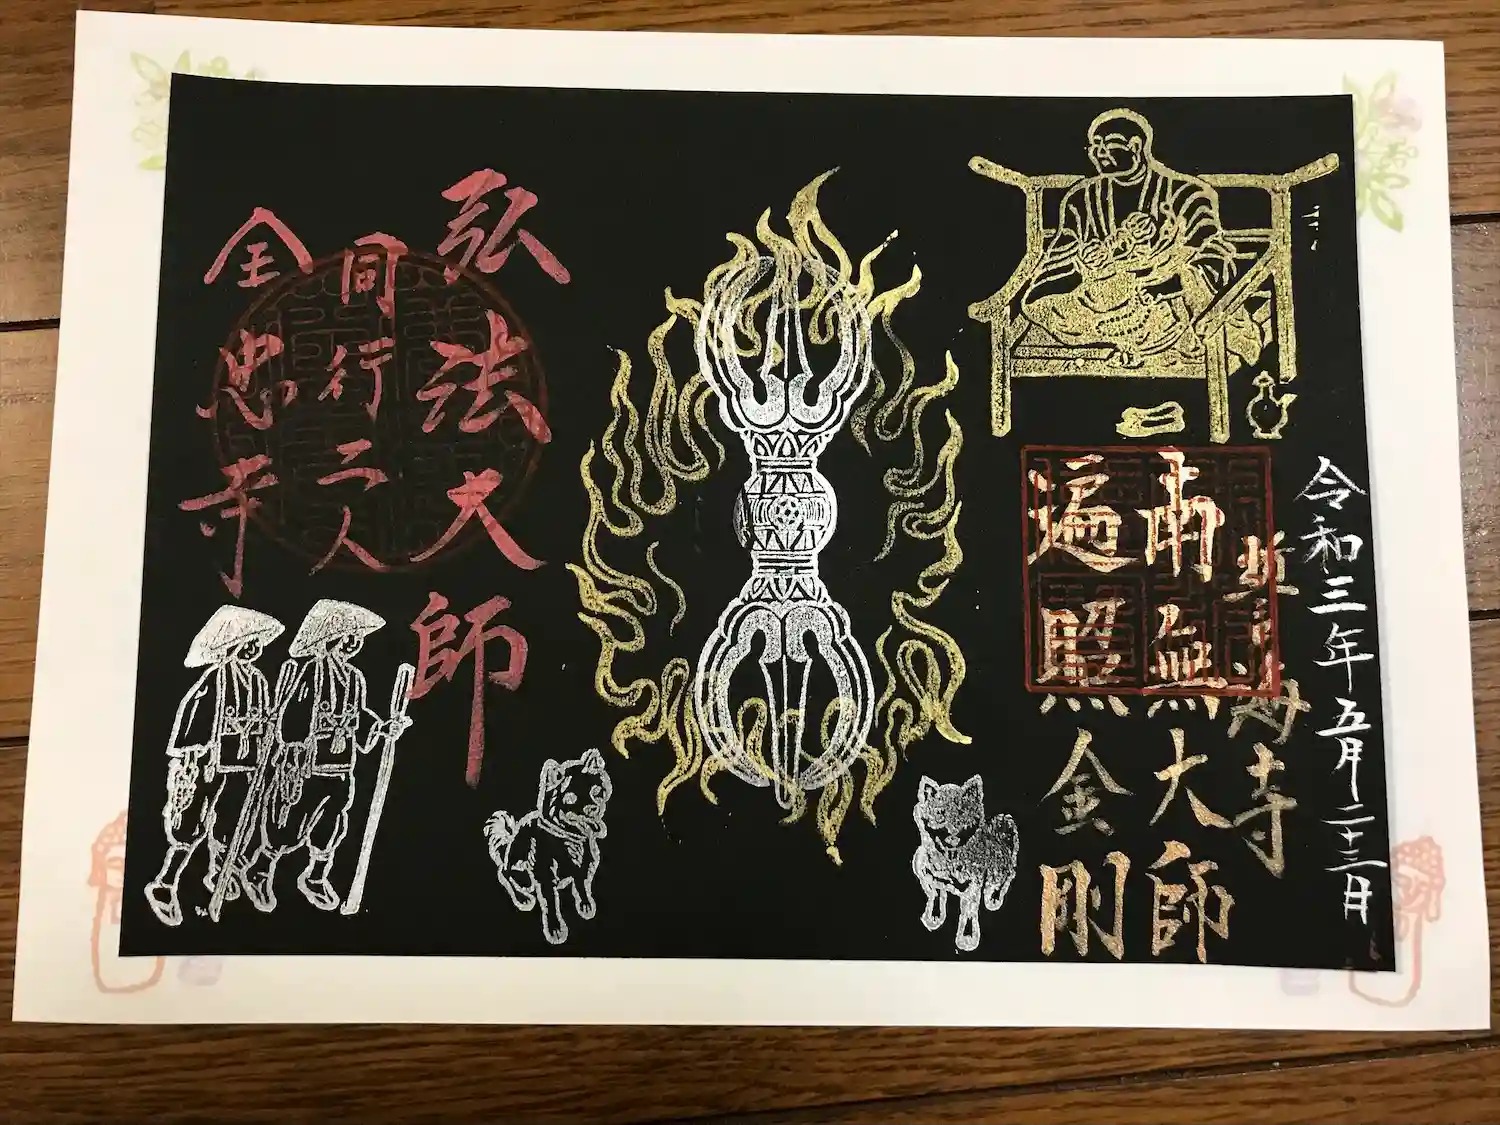 令和三年五月二十三日
寺
南無大師
遍照金剛
弘法大師
同行二人
全忠寺